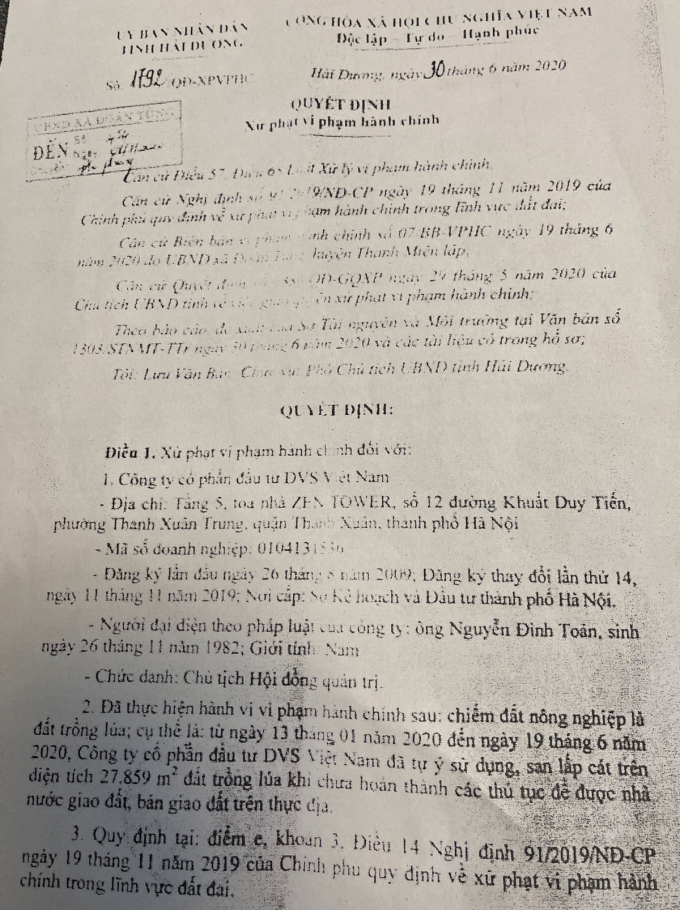 ỦY BAN NHÂN DÂN
TỈNH HẢI DƯƠNG
CỘNG HÒA XÃ HỘI CHỦ NGHĨA VIỆT NAM
Độc lập - Tự do - Hạnh phúc
Số: 1792/QĐ-XPVPHC
Hải Dương, ngày 30 tháng 6 năm 2020
QUYẾT ĐỊNH
Xử phạt vi phạm hành chính
UBND XÃ ĐOÀN TÙNG
ĐẾN Số
Ngày
Chuyển
Căn cứ Điều 57, Điều 68 Luật Xử lý vi phạm hành chính;
Căn cứ Nghị định số 91/2019/NĐ-CP ngày 19 tháng 11 năm 2019 của
Chính phủ quy định về xử phạt vi phạm hành chính trong lĩnh vực đất đai;
Căn cứ Biên bản vi phạm hành chính số 07/BB-VPHC ngày 19 tháng 6
năm 2020 do UBND xã Đoàn Tùng, huyện Thanh Miện lập;
Căn cứ Quyết định số QĐ-GQXP ngày 29 tháng 5 năm 2020 của
Chủ tịch UBND tỉnh về việc giao quyền xử phạt vi phạm hành chính;
Theo báo cáo, đề xuất của Sở Tài nguyên và Môi trường tại Văn bản số
1303/STNMT-TTr ngày 30 tháng 6 năm 2020 và các tài liệu có trong hồ sơ;
Tôi: Lưu Văn Bản; Chức vụ: Phó Chủ tịch UBND tỉnh Hải Dương.
QUYẾT ĐỊNH:
Điều 1. Xử phạt vi phạm hành chính đối với:
1. Công ty cổ phần đầu tư DVS Việt Nam
- Địa chỉ: Tầng 5, toà nhà ZEN TOWER, số 12 đường Khuất Duy Tiến,
phường Thanh Xuân Trung, quận Thanh Xuân, thành phố Hà Nội
- Mã số doanh nghiệp: 0104131536
- Đăng ký lần đầu ngày 26 tháng 8 năm 2009; Đăng ký thay đổi lần thứ 14,
ngày 11 tháng 11 năm 2019; Nơi cấp: Sở Kế hoạch và Đầu tư thành phố Hà Nội.
- Người đại diện theo pháp luật của công ty: ông Nguyễn Đình Toản, sinh
ngày 26 tháng 11 năm 1982; Giới tính: Nam
- Chức danh: Chủ tịch Hội đồng quản trị.
2. Đã thực hiện hành vi vi phạm hành chính sau: chiếm đất nông nghiệp là
đất trồng lúa; cụ thể là: từ ngày 13 tháng 01 năm 2020 đến ngày 19 tháng 6 năm
2020, Công ty cổ phần đầu tư DVS Việt Nam đã tự ý sử dụng, san lấp cát trên
diện tích 27.859 m² đất trồng lúa khi chưa hoàn thành các thủ tục để được nhà
nước giao đất, bàn giao đất trên thực địa.
3. Quy định tại: điểm e, khoản 3, Điều 14 Nghị định 91/2019/NĐ-CP
ngày 19 tháng 11 năm 2019 của Chính phủ quy định về xử phạt vi phạm hành
chính trong lĩnh vực đất đai.